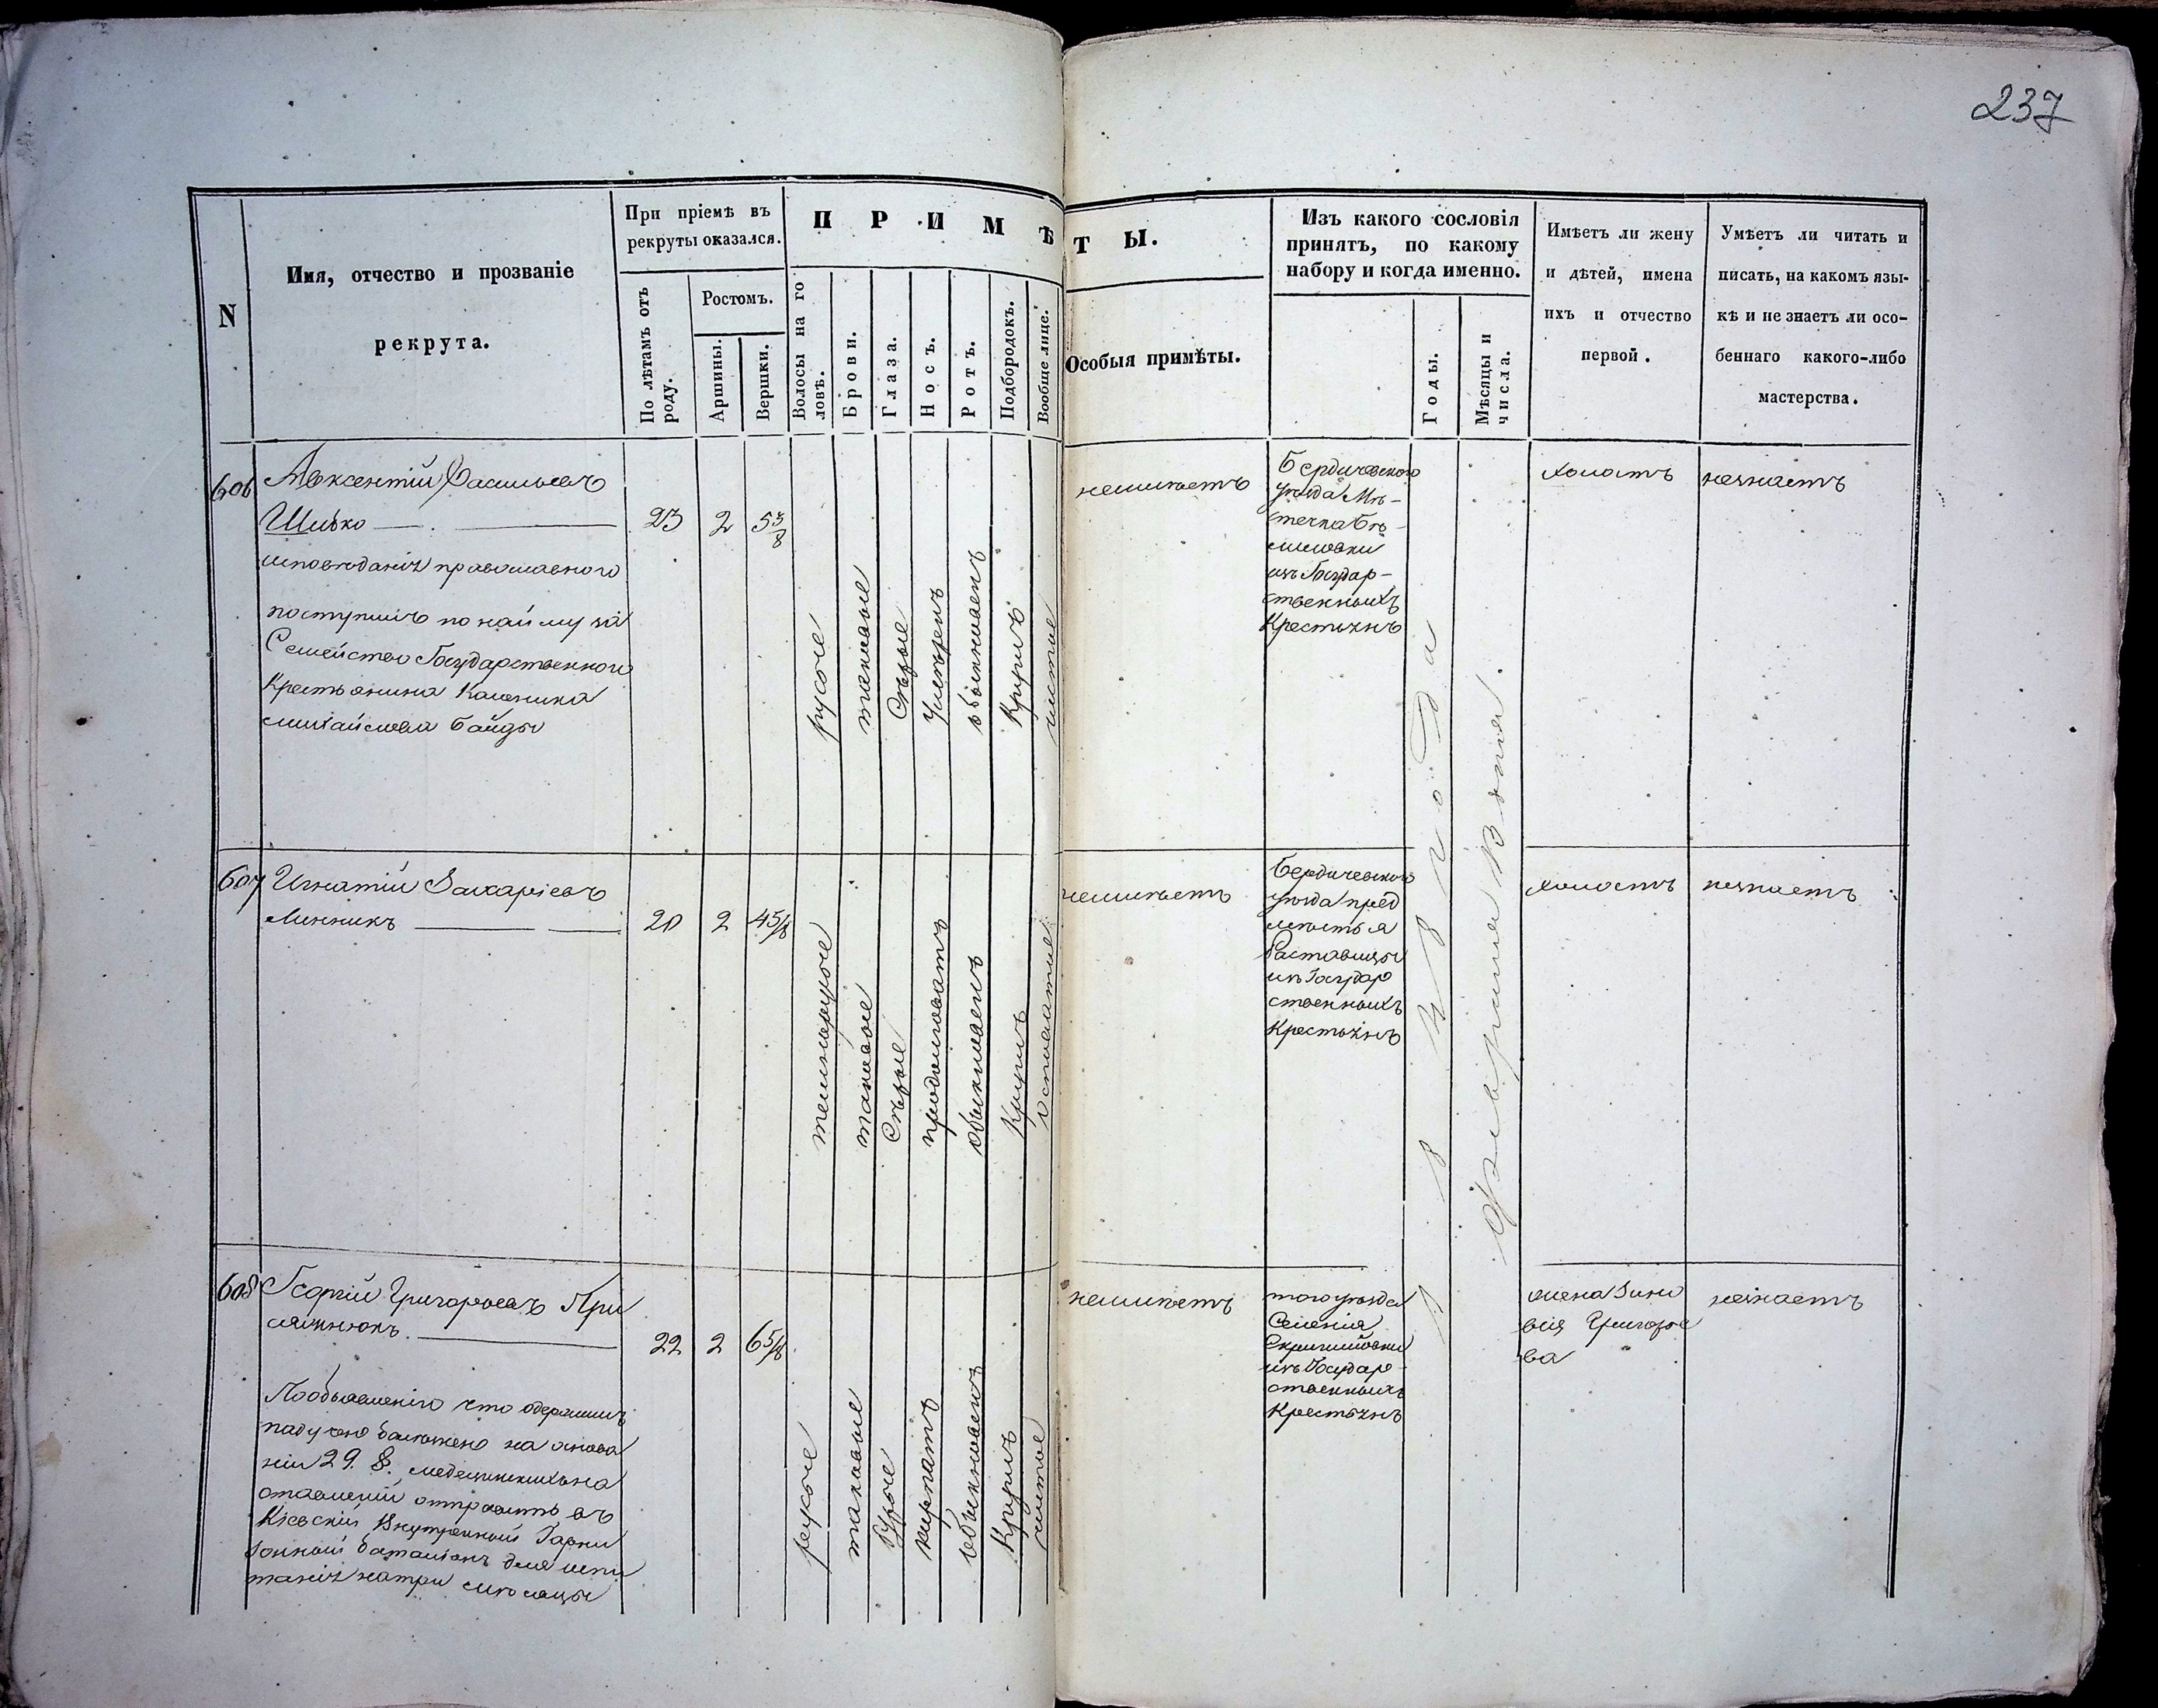 237
N
Имя, отчество и прозваніе
рекрута.
При пріемѣ въ
рекруты оказался.
По лѣтамъ отъ
роду.
Ростомъ.
Аршины.
Вершки.
ПРИМѢТЫ.
Волосы на го
ловѣ.
Брови.
Глаза.
Носъ.
Ротъ.
Подбородокъ.
Вообще лице.
Особыя примѣты.
Изъ какого сословія
принятъ, по какому
набору и когда именно.
Годы.
Мѣсяцы и
числа.
Имѣетъ ли жену
и дѣтей, имена
ихъ и отчество
первой.
Умѣетъ ли читать и
писать, на какомъ язы-
кѣ и не знаетъ ли осо-
беннаго какого-либо
мастерства.
606
Авксентій Васильевъ
Шибко
исповѣданія православного
поступилъ по найму за
Семейство Государственного
Крестьянина Каленика
Михайлова Байды
23
2
5 3/8
русые
таковые
Сѣрые
Умѣренъ
обыкновенъ
Круглъ
чистое
неимѣетъ
Бердичевского
уѣзда Мѣ-
стечка Бѣ-
иловки
изъ Государ-
ственныхъ
Крестьянъ
холостъ
незнаетъ
607
Игнатій Захаріевъ
Линникъ
20
2
4 5/8
темнорусые
таковые
Сѣрые
продолговатъ
обыкновенъ
Круглъ
осповатое
неимѣетъ
Бердичевского
уѣзда пред
мѣстья
Раставицы
изъ Государ
ственныхъ
Крестьянъ
холостъ
незнаетъ
608
Георгій Григорьевъ При
сяжнюкъ.
По объявленію что одержимъ
падучею болезнею на основа
ніи 29. §. медецинскихъ на
ставленій отправить въ
Кіевскій Внутренный Гарни
зонный баталіонъ для испы
танія на три мѣсяцы
22
2
6 5/8
русые
таковые
бурые
обыкновенъ
Круглъ
чистое
неимѣетъ
того уѣзда
Селенія
изъ Государ
ственныхъ
Крестьянъ
1848 года
Февраля 13 дня.
жена Зино
вія Григорье
ва
незнаетъ